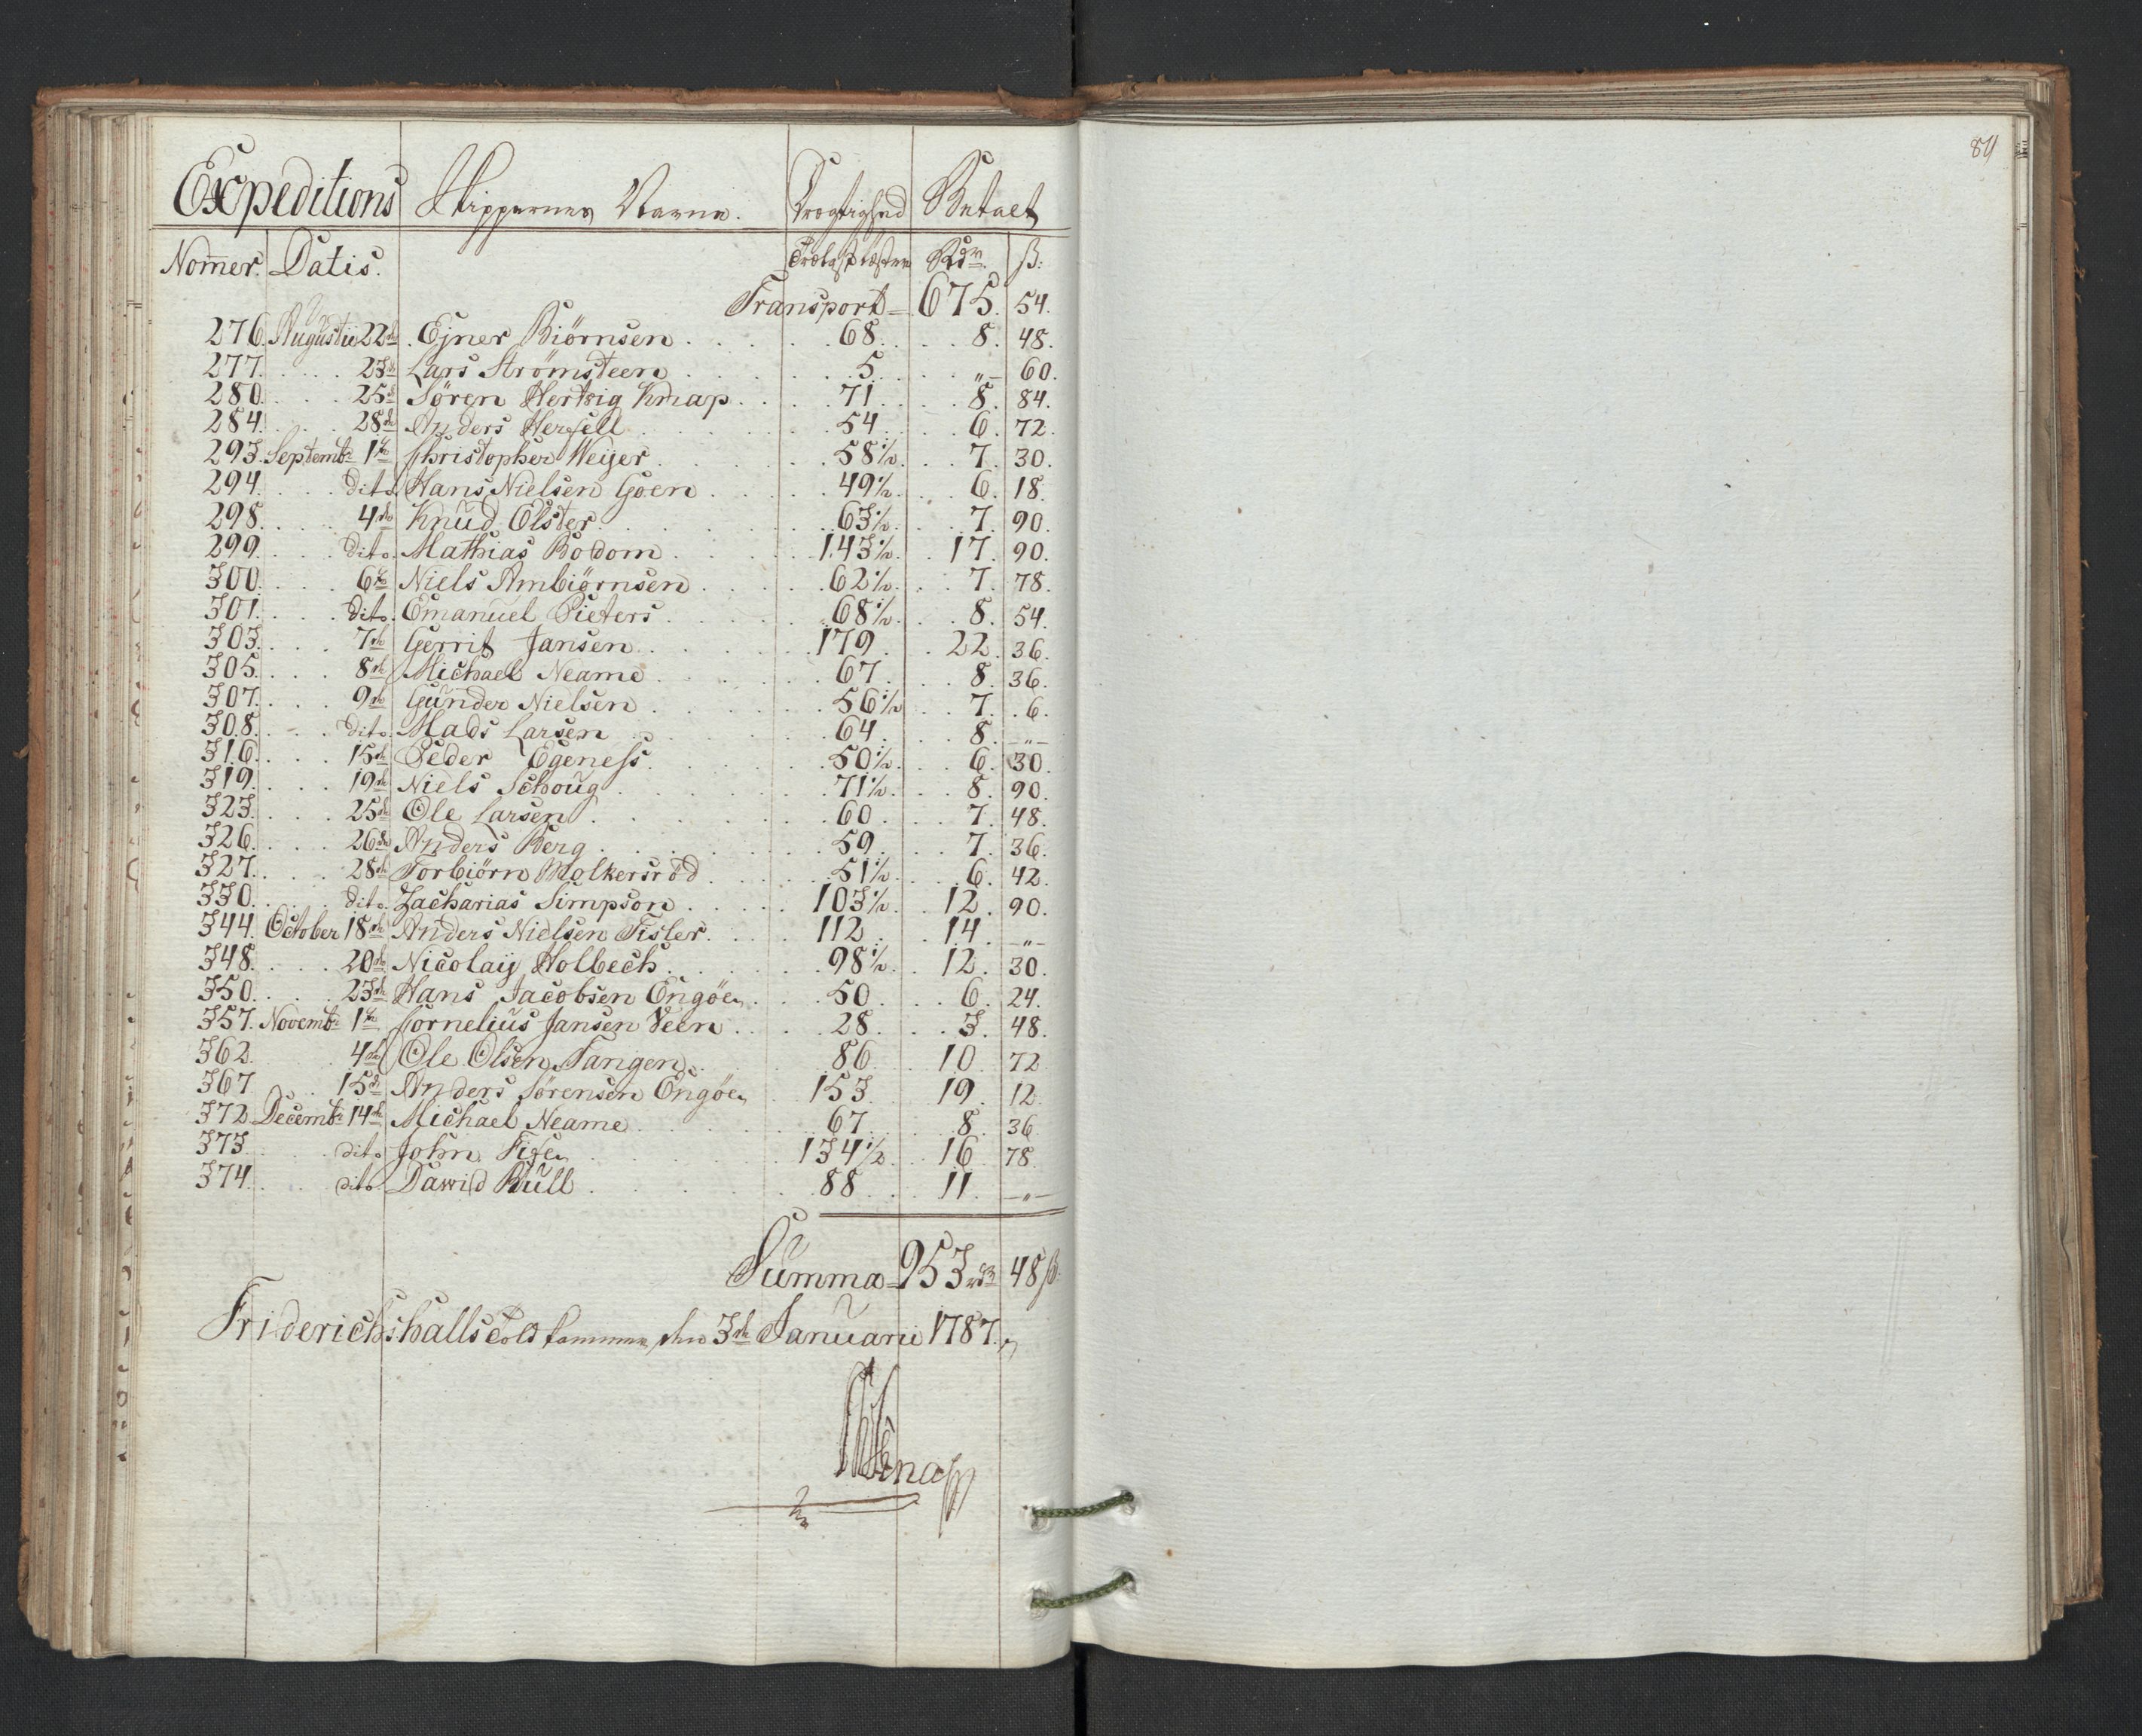 84
Expeditions Skippernes Navne. Drægtighed Betalt
Nom̄er. Datis. Trælast læster Rdr. ß.
Transport = 675. 54.
276. Augustii 22de Ejner Biørnsen 68. 8. 48.
277. 23de Lars Strømsteen 5. „ 60.
280. 25de Søren Hertvig Knap 71. 8. 84.
284. 28de Anders Herfell 54. 6. 72.
293. Septembr 1te Christopher Weyer 58 1/2. 7. 30.
294. dito Hans Nielsen Goen 49 1/2. 6. 18.
298. 4de Knud Olster 63 1/2. 7. 90.
299. dito Mathias Bodom 143 1/2. 17. 90.
300. 6te Niels Ambiørnsen 62 1/2. 7. 78.
301. dito Emanuel Pieters 68 1/2. 8. 54.
303. 7de Gerrit Jansen 179. 22. 36.
305. 8de Michael Neame 67. 8. 36.
307. 9de Gunder Nielsen 56 1/2. 7. 6.
308. dito Mads Larsen 64. 8. „
316. 15de Peder Egeness 50 1/2. 6. 30.
319. 19de Niels Schoug 71 1/2. 8. 90.
323. 25de Ole Larsen 60. 7. 48.
326. 26de Anders Berg 59. 7. 36.
327. 28de Torbiørn Molkersröd 51 1/2. 6. 42.
330. dito Zacharias Simpson 103 1/2. 12. 90.
344. October 18de Anders Nielsen Fisler 112. 14. „
348. 20de Nicolaij Holbech 98 1/2. 12. 30.
350. 23de Hans Jacobsen Engöen 50. 6. 24.
357. Novembr 1te Cornelius Jansen Veen 28. 3. 48.
362. 4de Ole Olsen Tangen 86 10 72
367 15de Anders Sørensen Engöen 153. 19. 12.
372 Decembr 14de Michael Neame 67. 8. 36
373 dito John Fife 134 1/2 16 78
374. dito Dawid Bull 88. 11. „
Summa = 953 rdr 48 ß
Friderichshalls Told kammer den 3de Januarii 1787.